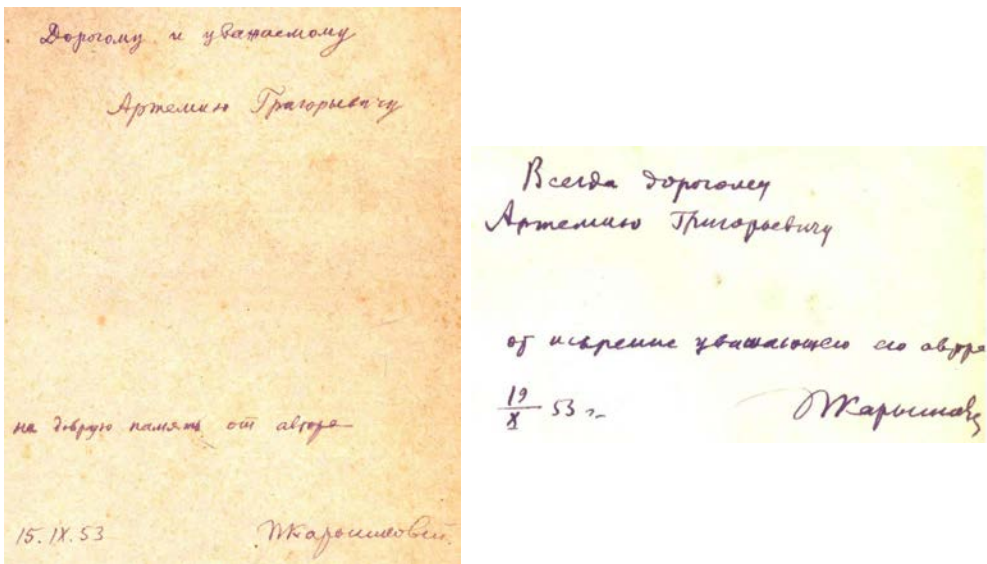 Дорогому и уважаемому
Артемию Григорьевичу
на добрую память от автора
15.IX.53 ПКарышковский
Всегда дорогому
Артемию Григорьевичу
от искренне уважающего его автора
19/X 53 г. ПКарышковск